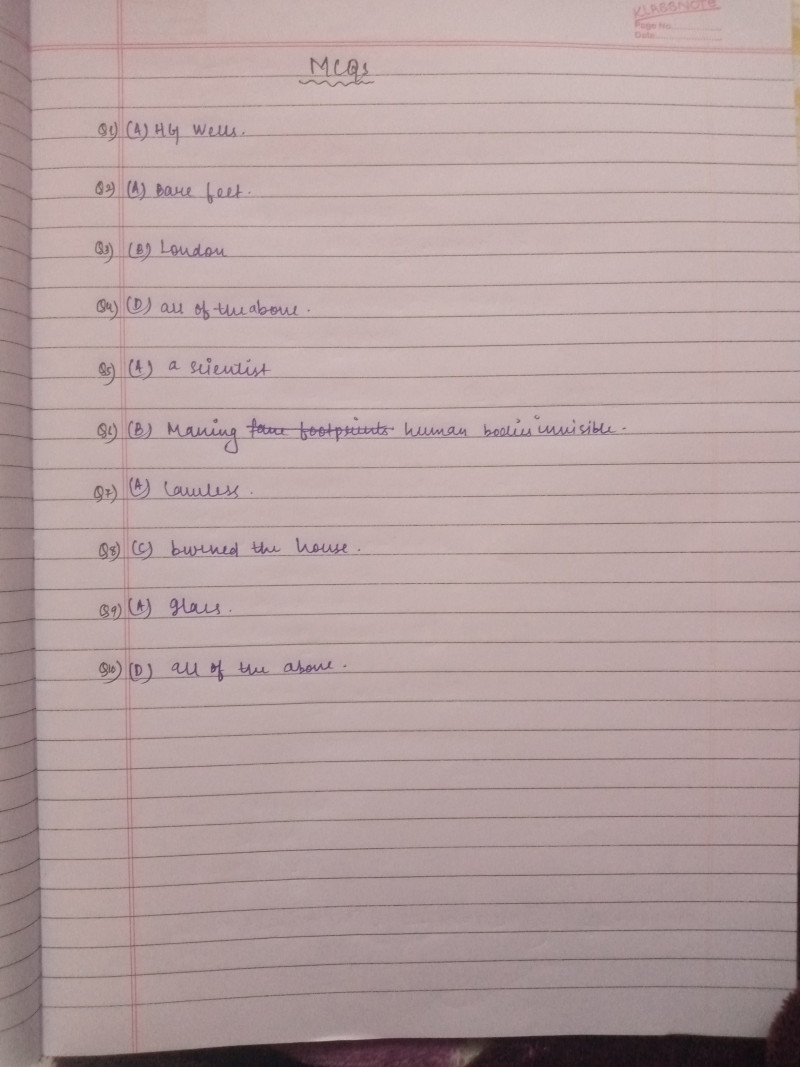 KLASSNOTE
Page No.
Date
MCQs
Q1) (A) HG Wells.
Q2) (A) Bare feet.
Q3) (B) London
Q4) (D) all of the above.
Q5) (A) a scientist
Q6) (B) Making fake footprints human bodies invisible.
Q7) (A) Lawless.
Q8) (C) burned the house.
Q9) (A) glass.
Q10) (D) all of the above.